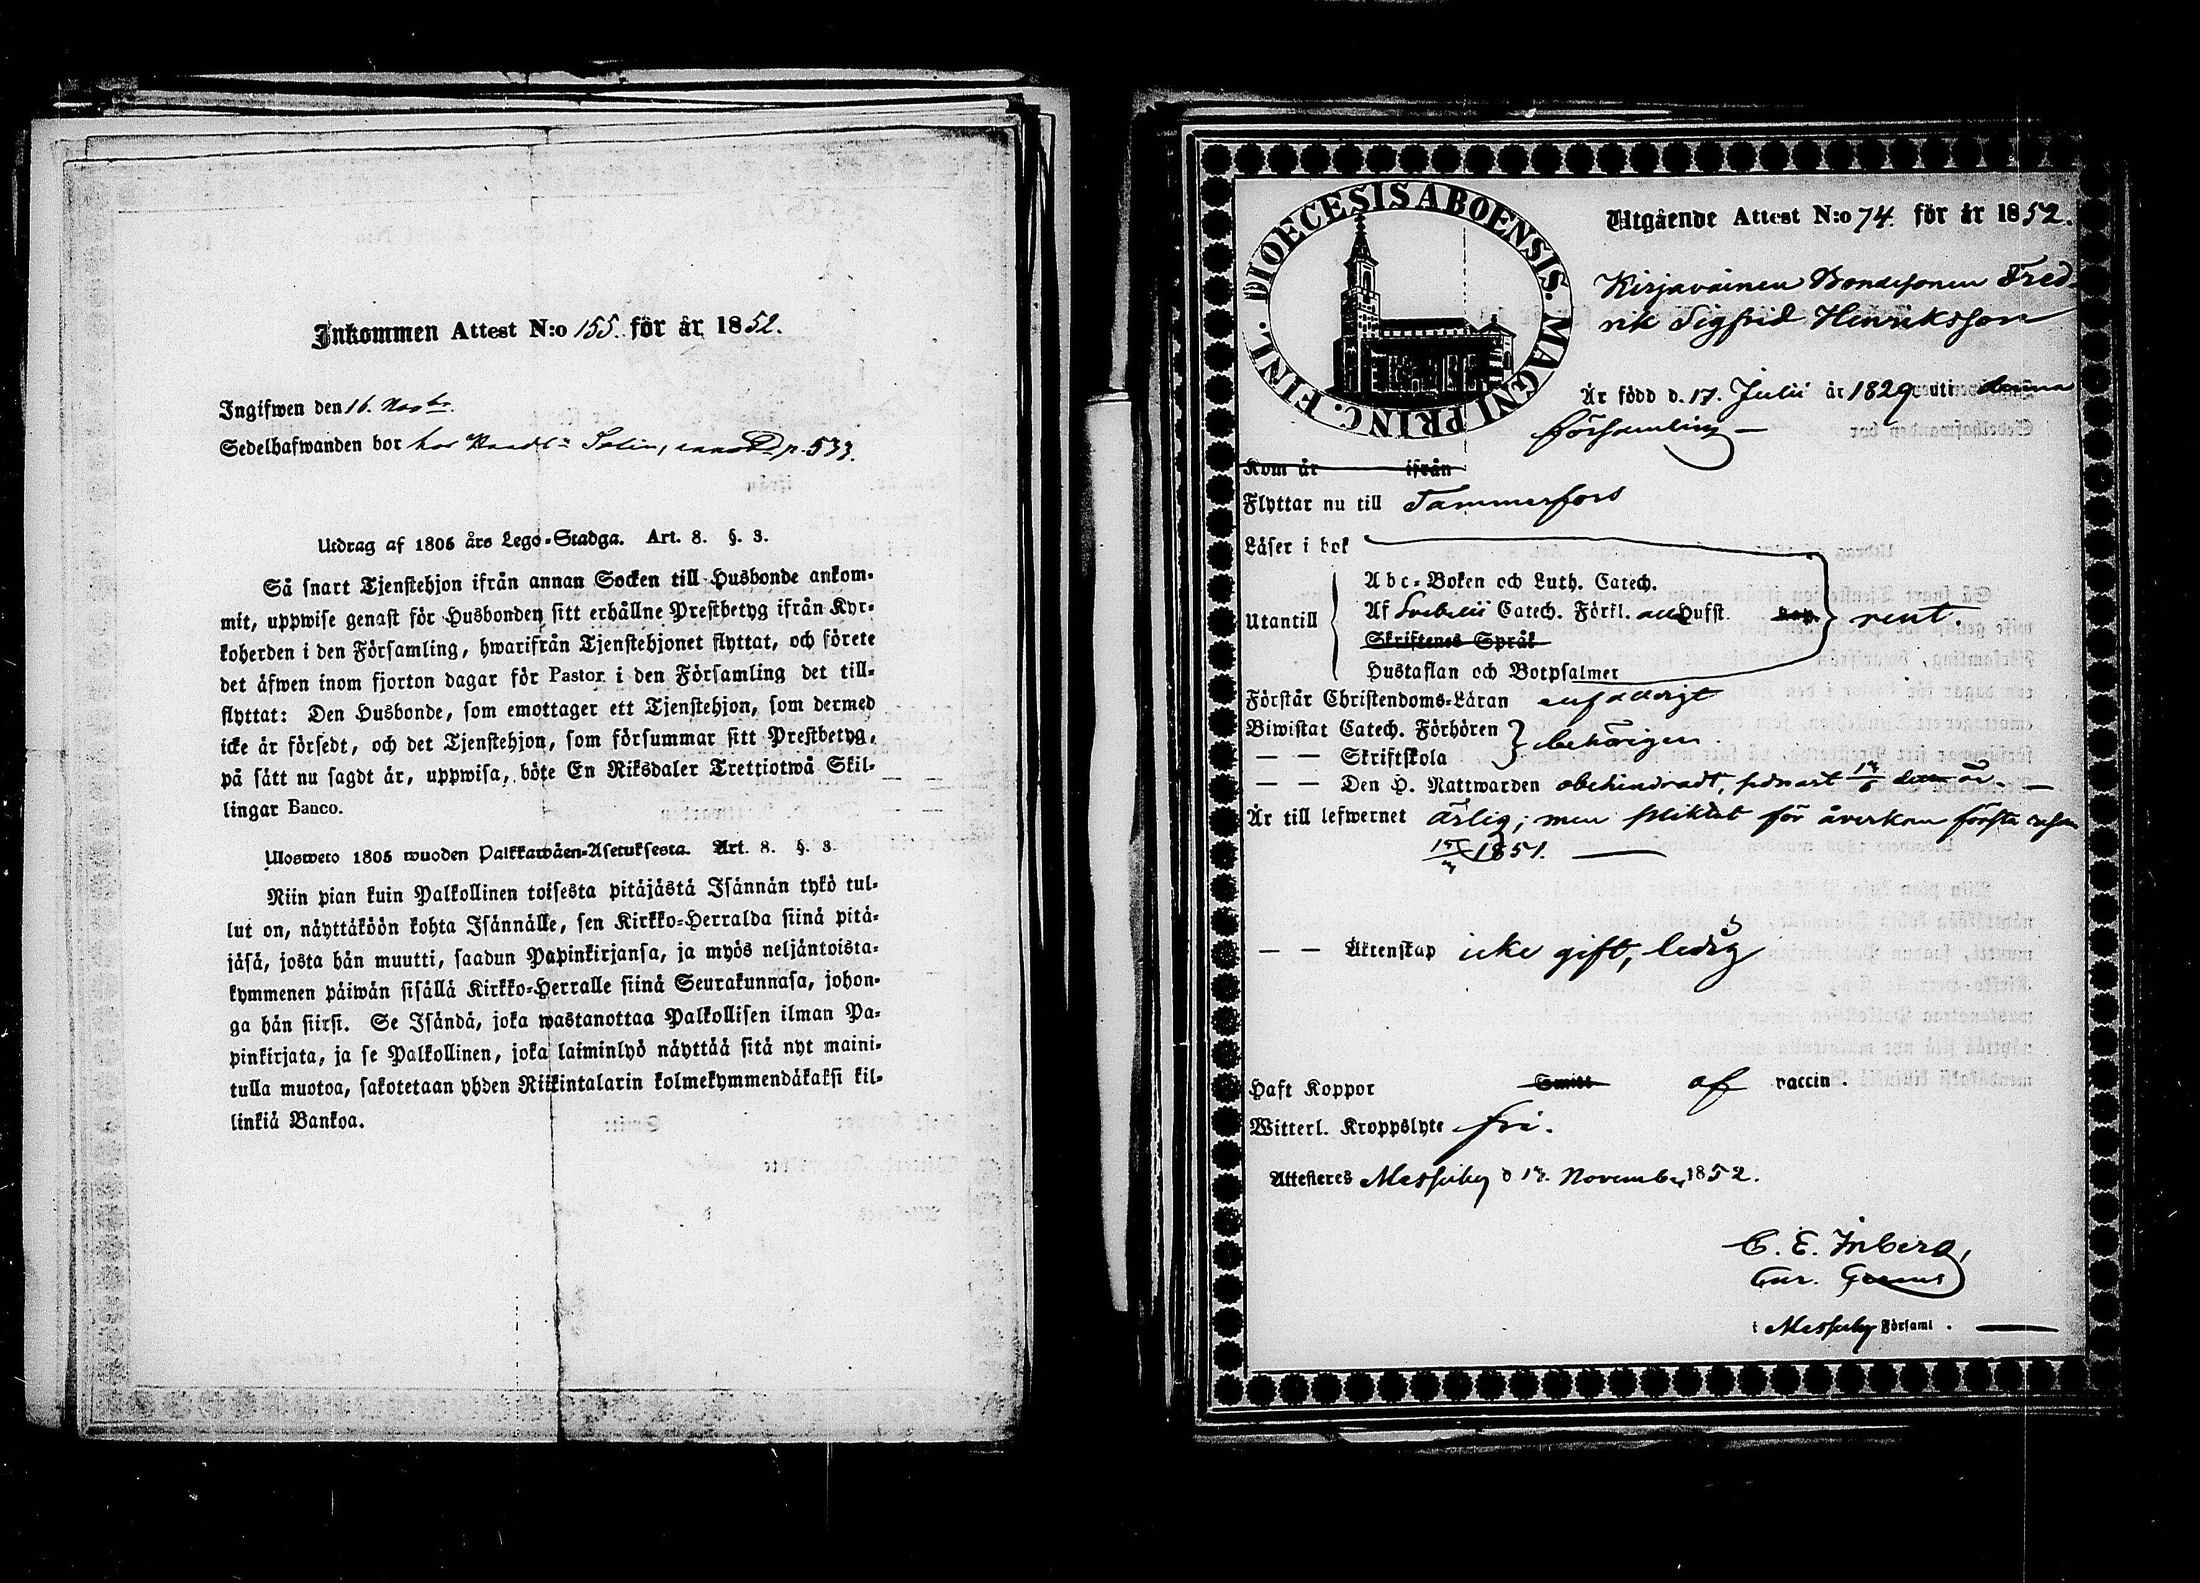 Inkommen Attest N:o 155. för år 1852.
Ingifwen den 16. Novbr.
Sedelhafwanden bor hos Handl: Solin, p. 533.
Utdrag af 1805 års Lego-Stadga. Art. 8. §. 3.
Så snart Tjenstehjon ifrån annan Socken till Husbonde ankom-
mit, uppwise genast för Husbonden sitt erhållne Prestbetyg ifrån Kyr-
koherden i den Församling, hwarifrån Tjenstehjonet flyttat, och förete
det äfwen inom fjorton dagar för Pastor i den Församling det till-
flyttat: Den Husbonde, som emottager ett Tjenstehjon, som dermed
icke är försedt, och det Tjenstehjon, som försummar sitt Prestbetyg,
på sätt nu sagdt är, uppwisa, böte En Riksdaler Trettiotwå Skil-
lingar Banco.
Ulosweto 1805 wuoden Palkkawäen-Asetuksesta. Art. 8. §. 3.
Niin pian kuin Palkollinen toisesta pitäjästä Isännän tykö tul-
lut on, näyttäköön kohta Isännälle, sen Kirkko-Herralda siinä pitä-
jäsä, josta hän muutti, saadun Papinkirjansa, ja myös neljäntoista-
kymmenen päiwän sisällä Kirkko-Herralle siinä Seurakunnasa, johon-
ga hän siirsi. Se Isändä, joka wastanottaa Palkollisen ilman Pa-
pinkirjata, ja se Palkollinen, joka laiminlyö näyttää sitä nyt maini-
tulla muotoa, sakotetaan yhden Riikintalarin kolmekymmendäkaksi kil-
linkiä Bankoa.
DIOECESIS ABOENSIS. MAGNI PRINC. FINL.
Utgående Attest N:o 74. för år 1852.
Kirjavainen Bondesonen Fred-
rik Sigfrid Henriksson
Är född d. 17. Julii år 1829 uti denna
församling —
Kom år ifrån
Flyttar nu till Tammerfors
Läser i bok
Abc-Boken och Luth. Catech.
Utantill Af Svebelii Catech. Förkl. alla Hufst. Kap. rent.
Skriftenes Språk
Hustaflan och Botpsalmer
Förstår Christendoms-Läran enfaldigt
Biwistat Catech. Förhören behörigen.
— — Skriftskola
— — Den H. Nattwarden obehindradt, sednast år. —
Är till lefwernet ärlig; men pliktat för åverkan första resan
1851. —
— — Äktenskap icke gift, ledig
Haft Koppor Smitt af vaccin.
Witterl. Kroppslyte fri.
Attesteres Messuby d 17. November 1852.
C. E. Inberg,
Cur. Gerens
i Messuby Församl. —